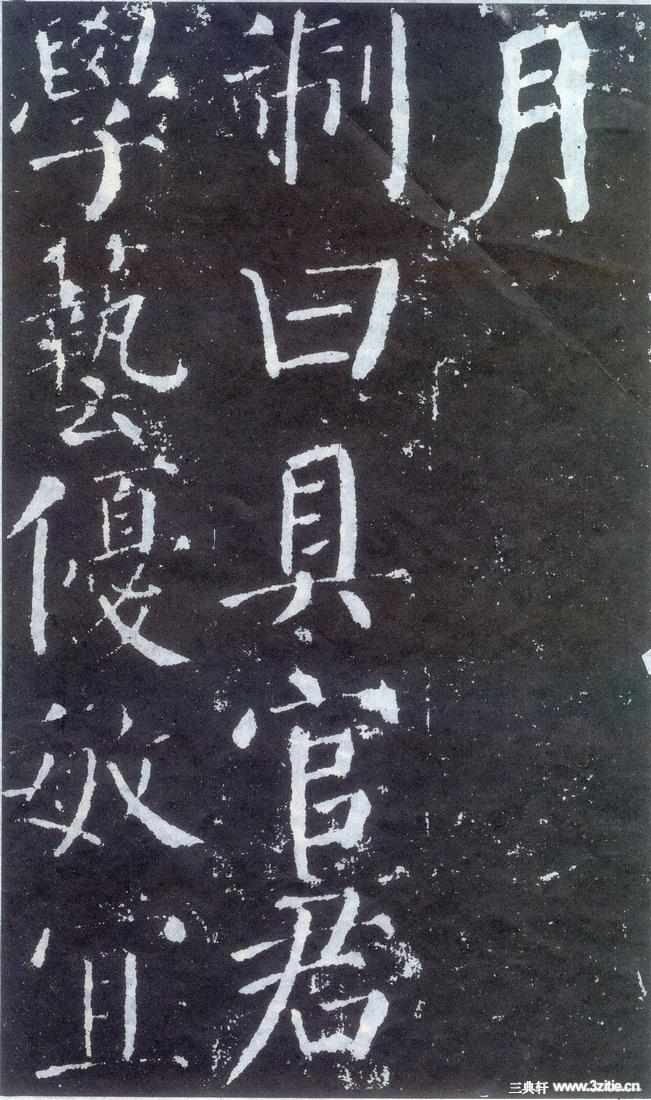 月
制曰具官君
學藝優敏宜
三典轩 www.3zitie.cn